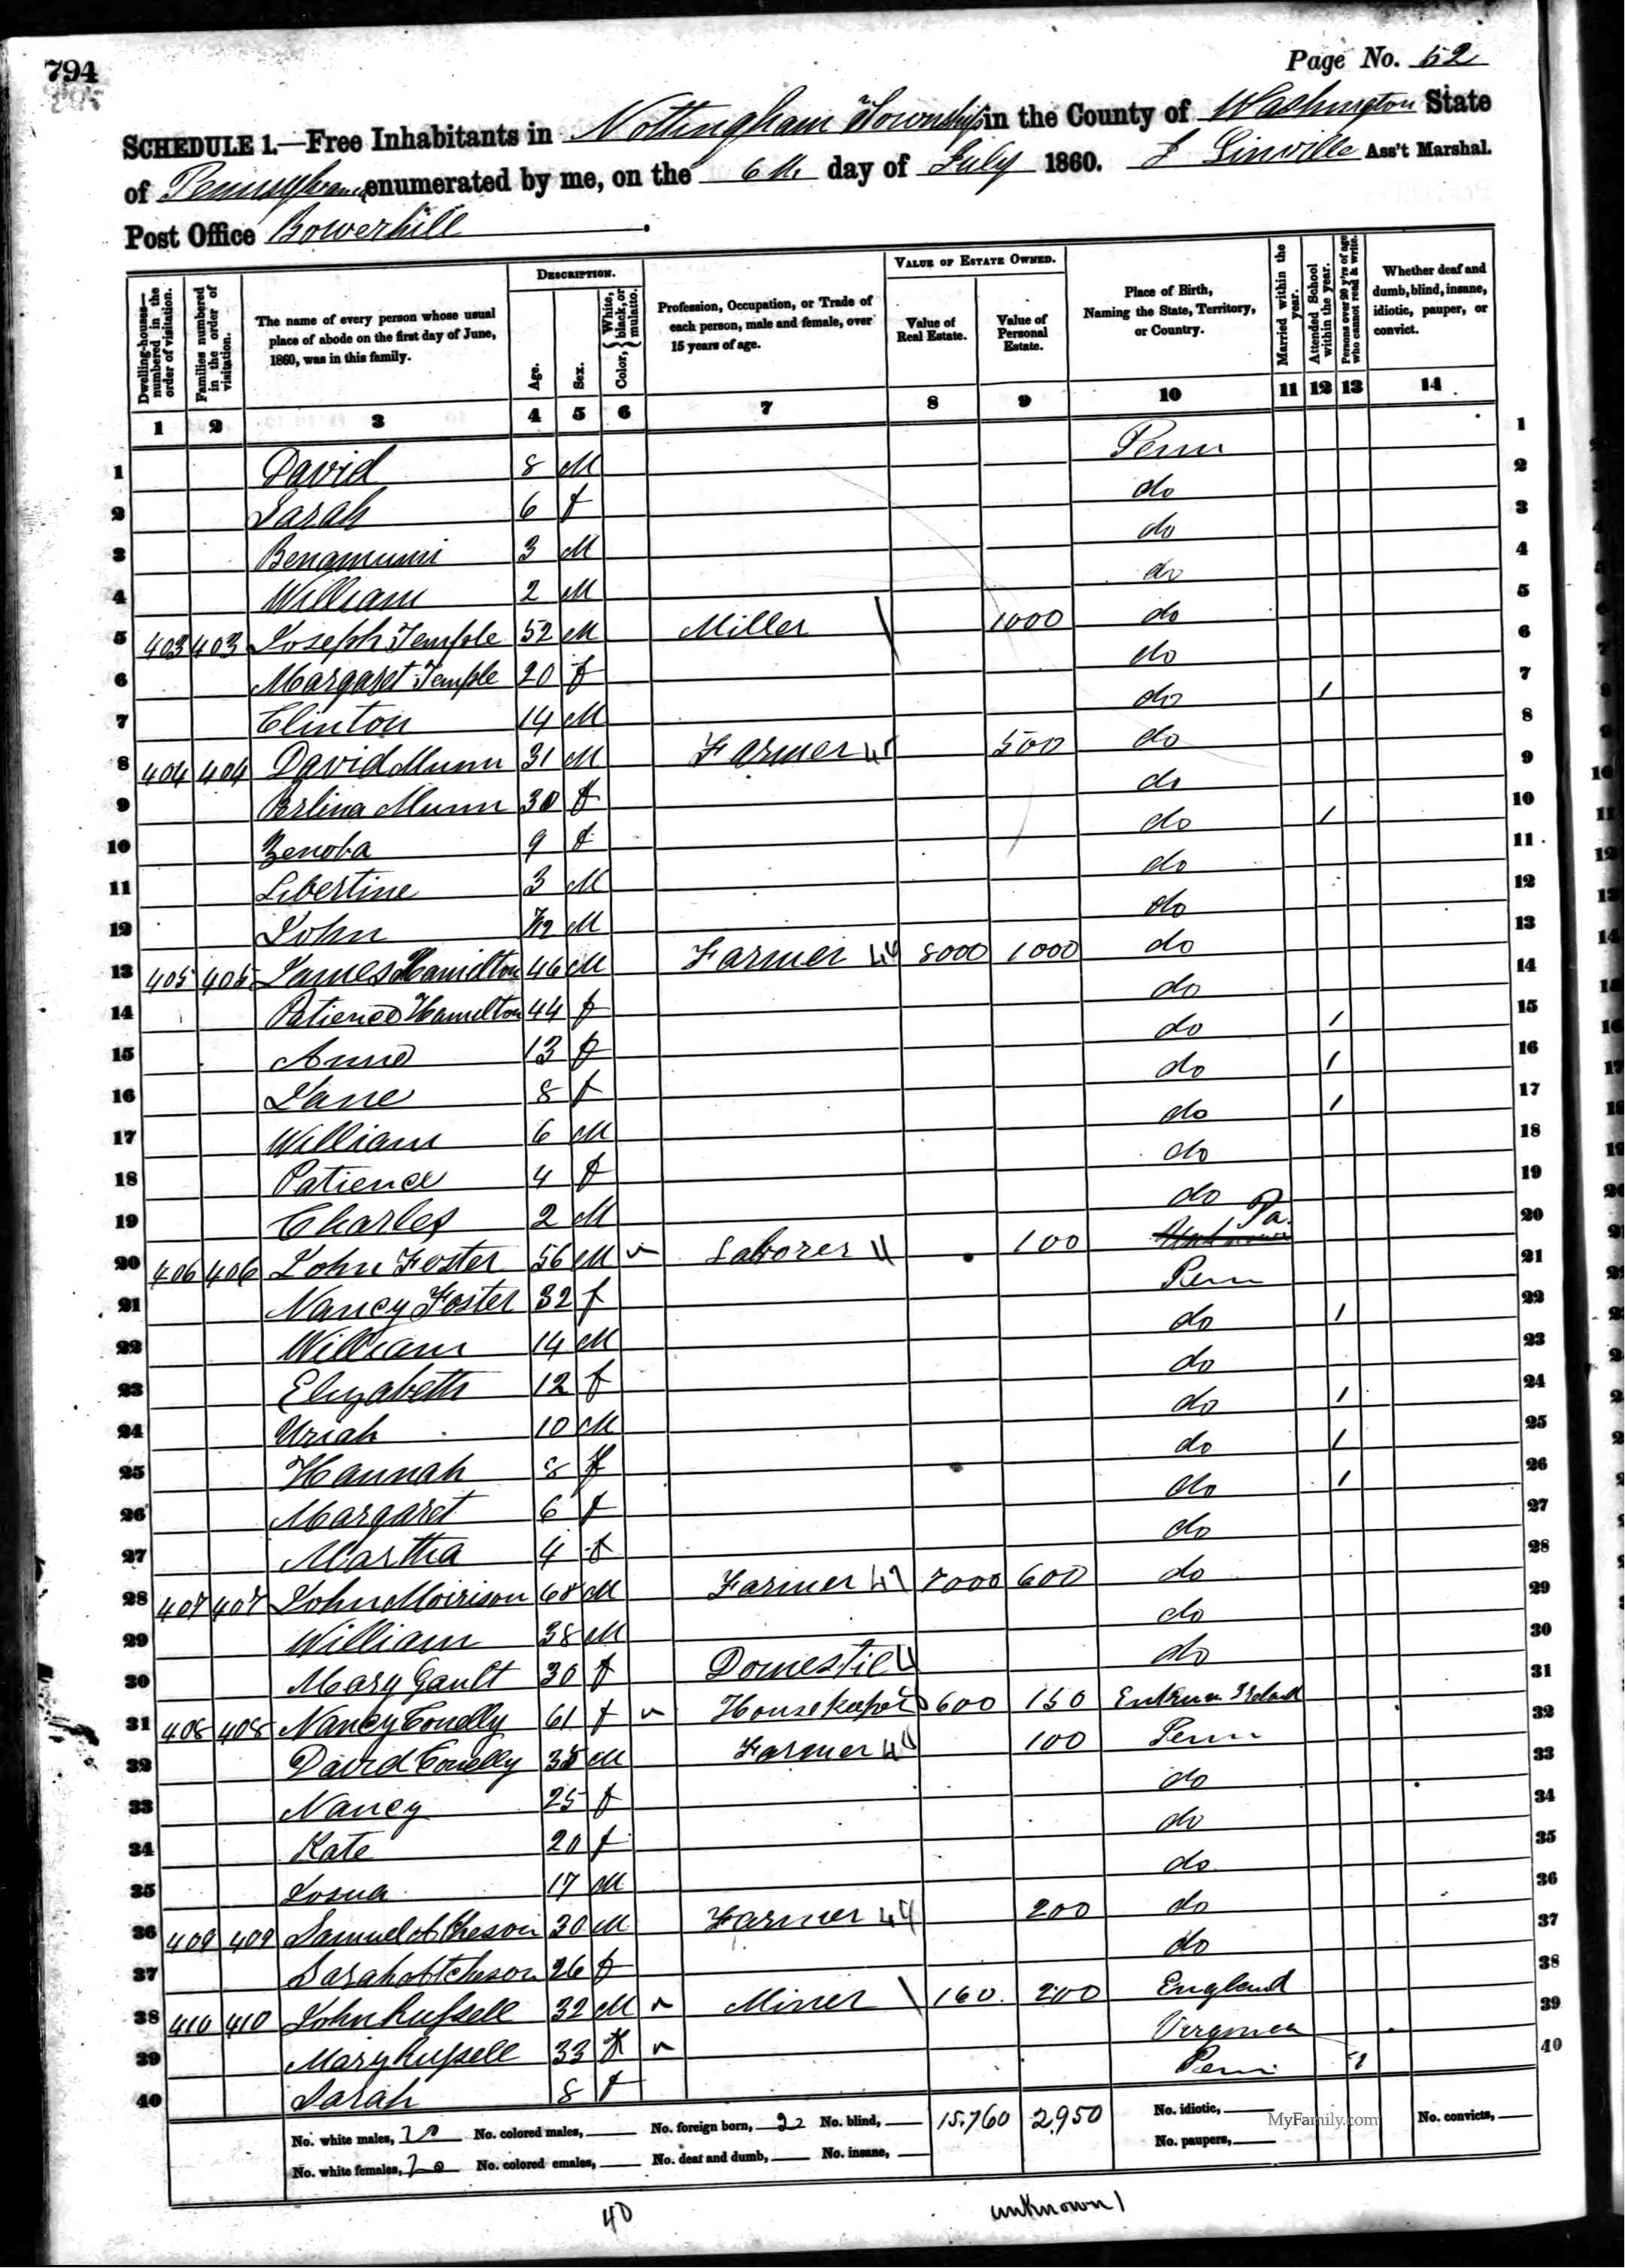 794
Page No. 52
SCHEDULE 1.—Free Inhabitants in Nottingham Township in the County of Washington State
of Pennsylvania enumerated by me, on the 6th day of July 1860. J Linville Ass't Marshal.
Post Office Bowerhill.
Dwelling-houses—numbered in the order of visitation.
Families numbered in the order of visitation.
The name of every person whose usual place of abode on the first day of June, 1860, was in this family.
DESCRIPTION.
Age.
Sex.
Color, { White, black, or mulatto.
Profession, Occupation, or Trade of each person, male and female, over 15 years of age.
VALUE OF ESTATE OWNED.
Value of Real Estate.
Value of Personal Estate.
Place of Birth, Naming the State, Territory, or Country.
Married within the year.
Attended School within the year.
Persons over 20 y'rs of age who cannot read & write.
Whether deaf and dumb, blind, insane, idiotic, pauper, or convict.
1 2 3 4 5 6 7 8 9 10 11 12 13 14
1 David 8 M Penn 1
2 Sarah 6 f do 2
3 Benamumi 3 M do 3
4 William 2 M do 4
5 403 403 Joseph Temple 52 M Miller 1000 do 5
6 Margaret Temple 20 f do 6
7 Clinton 14 M do / 7
8 404 404 David Munn 31 M Farmer 500 do 8
9 Perlina Munn 30 f do 9
10 Zenoba 9 f do / 10
11 Libertine 3 M do 11
12 John /12 M do 12
13 405 405 James Hamilton 46 M Farmer 44 8000 1000 do 13
14 Patience Hamilton 44 f do 14
15 Anne 13 f do / 15
16 Jane 8 f do / 16
17 William 6 M do / 17
18 Patience 4 f do 18
19 Charles 2 M do 19
20 406 406 John Foster 56 M Laborer 100 Unknown Pa. 20
21 Nancy Foster 32 f Penn 21
22 William 14 M do / 22
23 Elizabeth 12 f do 23
24 Uriah 10 M do / 24
25 Hannah 8 f do / 25
26 Margaret 6 f do / 26
27 Martha 4 f do 27
28 407 407 John Morrison 68 M Farmer 7000 600 do 28
29 William 38 M do 29
30 Mary Gault 30 f Domestic do 30
31 408 408 Nancy Conelly 61 f Housekeeper 600 150 Ireland 31
32 David Conelly 35 M Farmer 100 Penn 32
33 Nancy 25 f do 33
34 Kate 20 f do 34
35 Josua 17 M do 35
36 409 409 Samuel Atcheson 30 M Farmer 44 200 do 36
37 Sarah Atcheson 26 f do 37
38 410 410 John Russell 32 M Miner 160 200 England 38
39 Mary Russell 33 f Virginia 39
40 Sarah 8 f Penn 1 40
No. white males, 20 No. colored males, No. foreign born, 2 No. blind, 15,760 2,950 No. idiotic, No. convicts,
No. white females, 20 No. colored emales, No. deaf and dumb, No. insane, No. paupers,
MyFamily.com
40 unknown 1